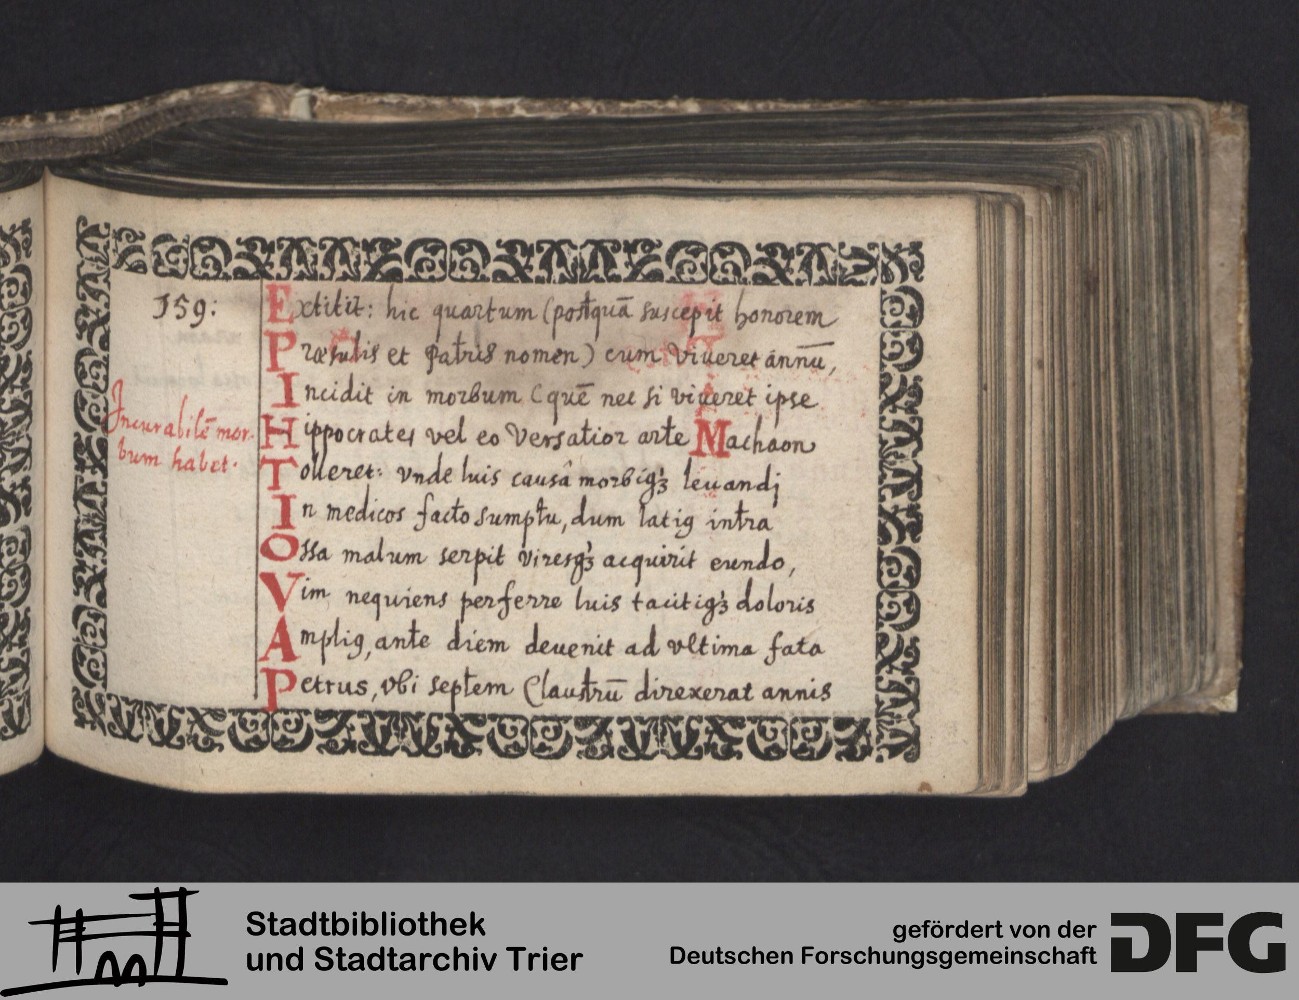 159:
Extitit: hic quartum (postquā suscepit honorem
Præsulis et patris nomen) cum viueret annū,
Incidit in morbum (quē nec si viueret ipse
Incurabilē mor-
bum habet.
Hippocrates vel eo versatior arte Machaon
Tolleret: vnde luis causâ morbiqꝫ leuandj
In medicos facto sumptu, dum latiꝰ intra
Ossa malum serpit viresqꝫ acquirit eundo,
Vim nequiens perferre luis tacitiqꝫ doloris
Ampliꝰ, ante diem deuenit ad vltima fata
Petrus, vbi septem Claustrū direxerat annis
Stadtbibliothek
und Stadtarchiv Trier
gefördert von der
Deutschen Forschungsgemeinschaft
DFG